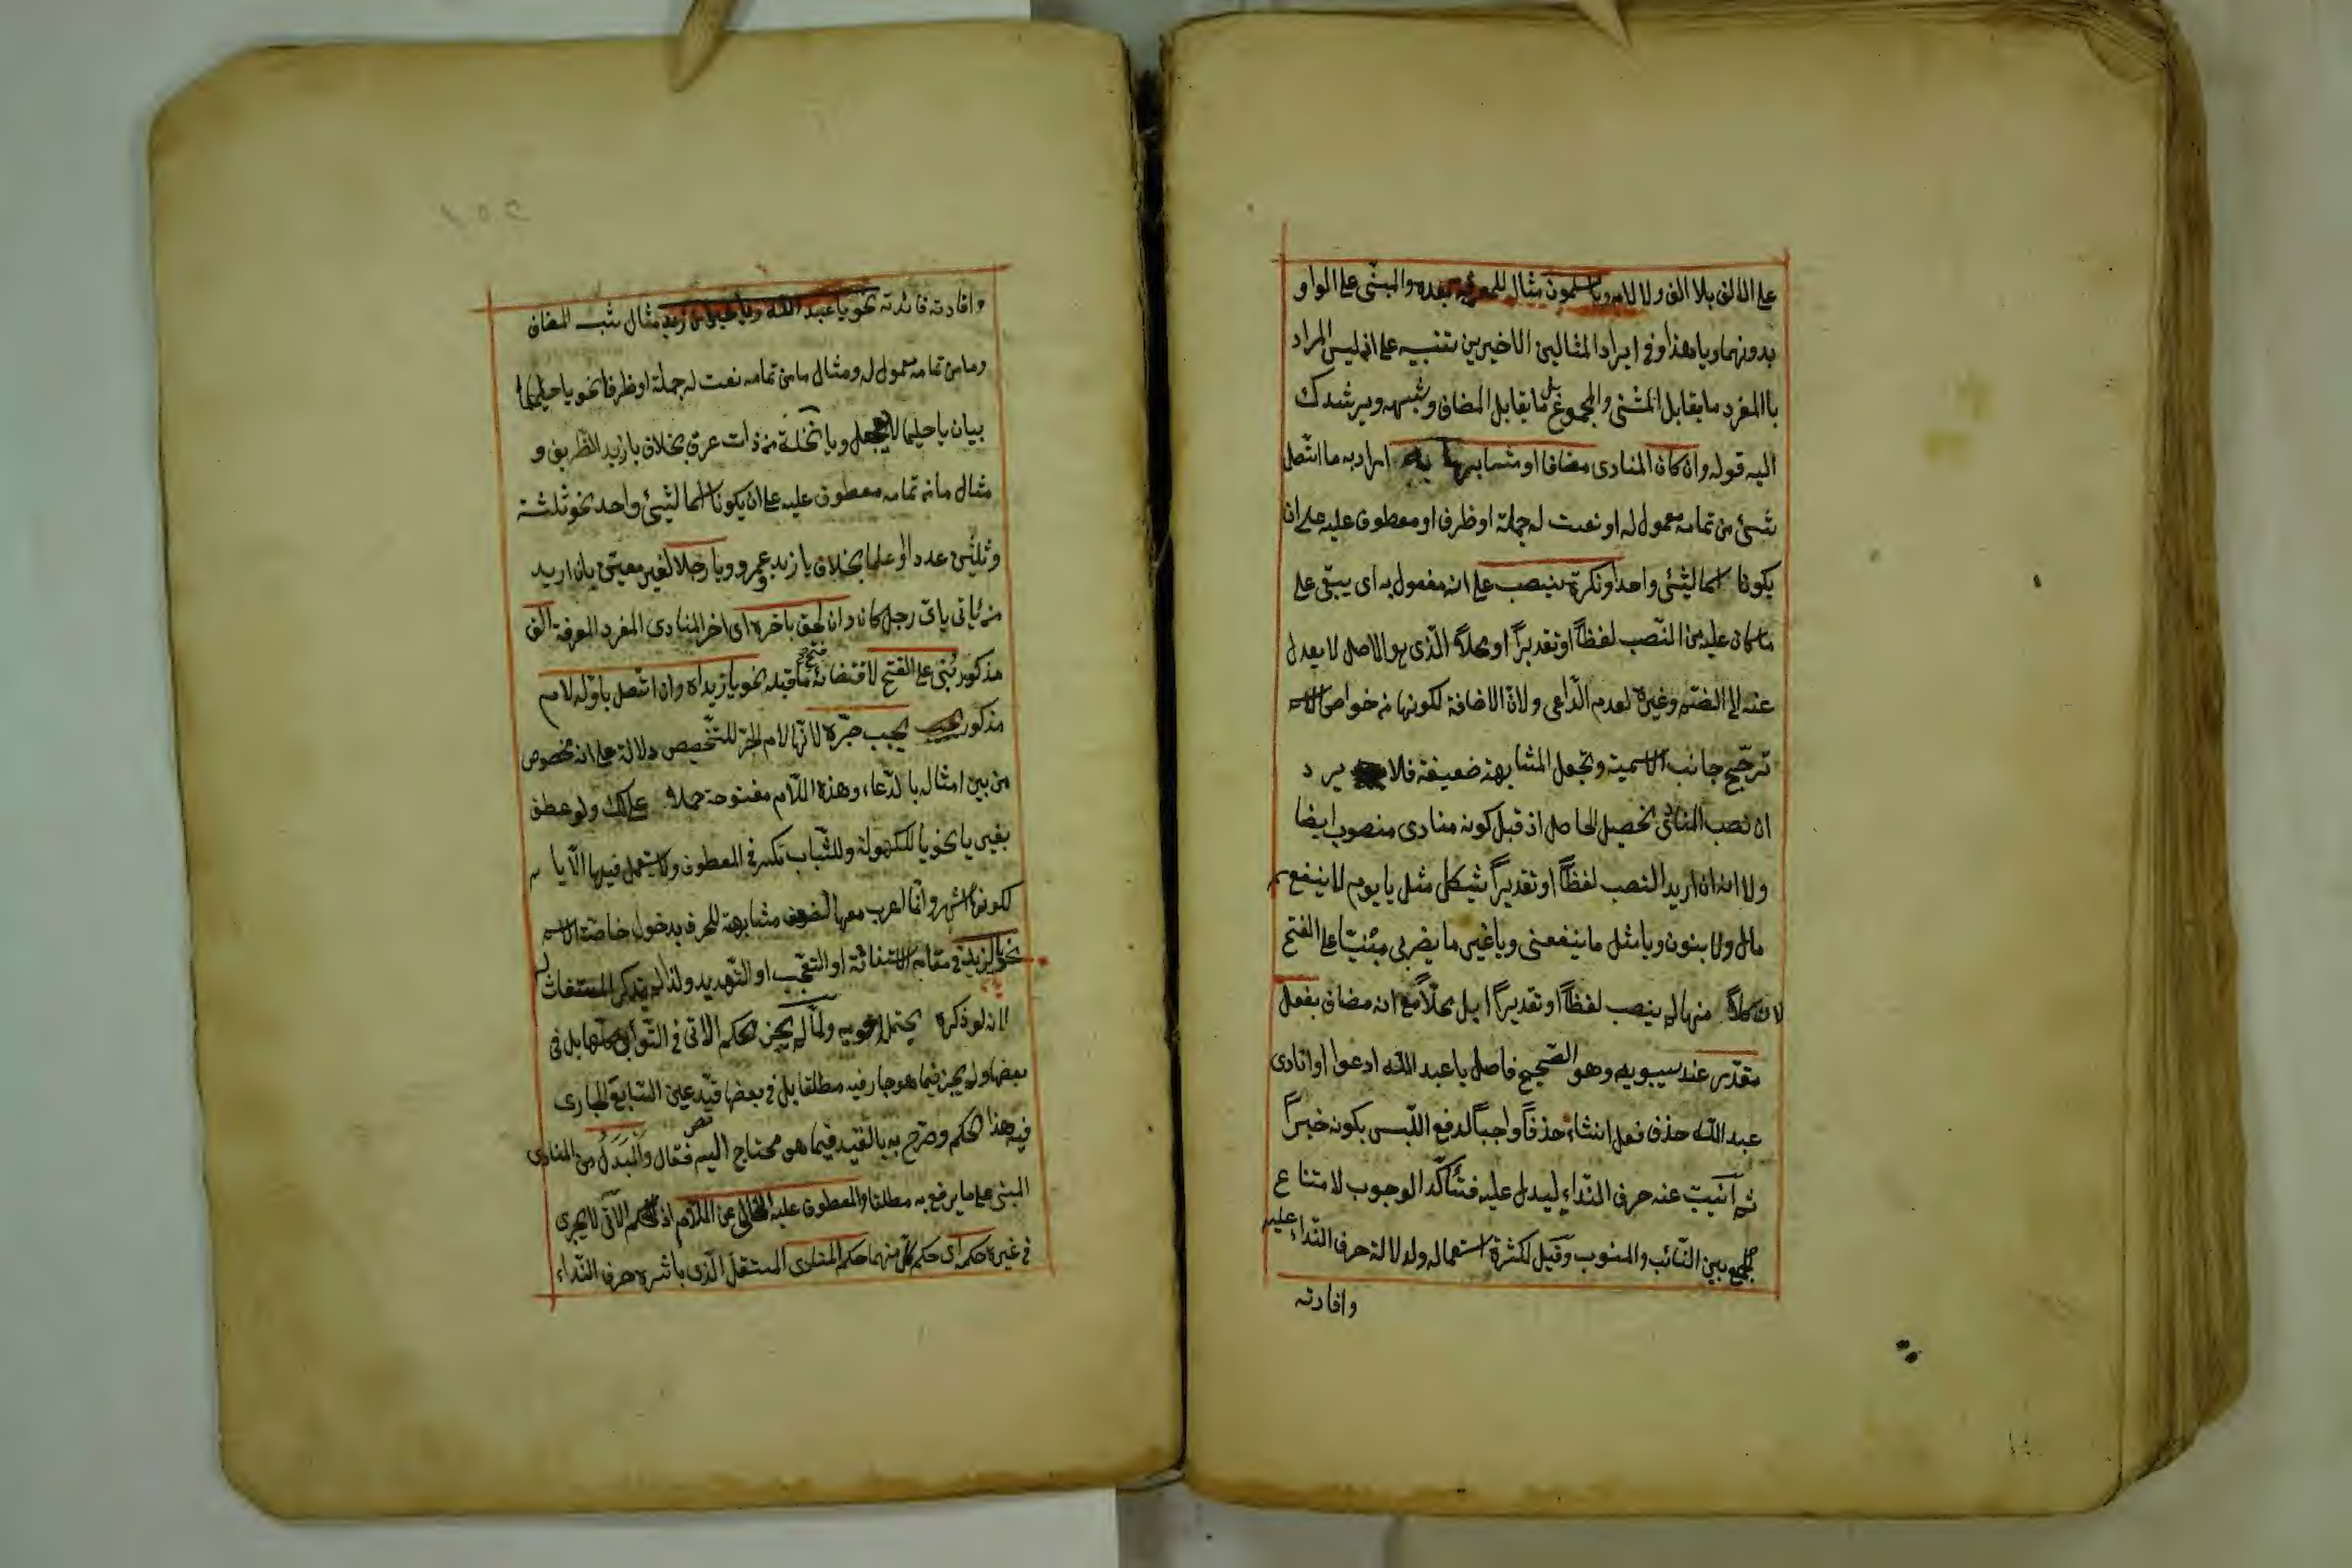 على الالف بلا الف ولا لام ويا مسلمون مثال للمعرفة بعده والمبنى على الواو
بدونهما ويا هذا وفى ايراد المثالين الاخيرين تنبيه على انه ليس المراد
باالمفرد ما يقابل المثنى والمجموع بل ما يقابل المضاف وشبهه ويرشدك
اليه قوله وان كان المنادى مضافا او مشابها به اراد به ما اتصل
شئ من تمامه معمول له او نعت له جملة او ظرف او معطوف عليه على ان
يكونا اسما لشئ واحد او نكرة ينصب على انه مفعول به اى يبقى على
ما كان عليه من النصب لفظاً او تقديراً او محلاً الذى هو الاصل لا يعدل
عنه الى الضم وغيره لعدم الداعى ولان الاضافة لكونها من خواص الاسم
ترجح جانب الاسمية وتجعل المشابهة ضعيفة فلا يرد
ان نصب المنادى تحصيل الحاصل اذ قبل كونه منادى منصوب ايضا
ولا انه ان اريد النصب لفظاً او تقديراً يشكل مثل يا يوم لا ينفع
مال ولا بنون ويا مثل ما ينفعنى ويا غير ما يضربى مبنيّا على الفتح
لان كلاً منها لم ينصب لفظاً او تقديراً بل محلاً مع انه مضاف بفعل
مقدر عند سيبويه وهو الصحيح فاصل يا عبد الله ادعوا او انادى
عبد الله حذف فعل انشاء حذفاً واجباً لدفع اللبس بكونه خبراً
ثم انيبت عنه حرف النداء ليدل عليه فتأكد الوجوب لامتناع
الجمع بين النائب والمنوب وقيل لكثرة استعماله ولدلالة حرف النداء عليه
وافادته
وافادته فائدته نحو يا عبد الله ويا خيرا من زيد مثال شبه المضاف
وما من تمامه معمول له ومثال ما من تمامه نعت له جملة او ظرفا نحو يا حليما
بيان يا حليما لا يعجل ويا نخلة من ذات عرق بخلاف يا زيد الظريف و
مثال ما من تمامه معطوف عليه على ان يكونا اسما لشئ واحد نحو ثلثة
وثلثين عددا او علما بخلاف يا زيد وعمرو ويا رجلا لغير معين بان اريد
من ياتى باى رجل كان وان لحق باخره اى اخر المنادى المفرد المعرفة الف
مذكور بنى على الفتح لاقتضائه فتح ما قبله نحو يا زيداه وان اتصل باوله لام
مذكور يجب جره لانها لام الجر للتخصيص دلالة على انه مخصوص
من بين امثاله بالدعاء وهذه اللام مفتوحة حملا على لك ولو عطف
بغير يا نحو يا للكهولة وللشباب تكسر فى المعطوف ولا يستعمل فيها الا يا
لكونها اشهر وانما اعرب معها لضعف مشابهة للحرف بدخول خاصة الاسم
نحو يا لزيد فى مقام الاستغاثة او التعجب او التهديد ولذا لم يذكر المستغاث
لانه لو ذكره يحتمل ولما لم يجز الحكم الاتى فى التوابع كلها بل فى
بعضها ولم يجز فيما هو جار فيه مطلقا بل فى بعضها قيد عين التابع الجارى
فيه هذا الحكم وصرح به بالقيد فيما هو محتاج اليه فقال والبدل من المنادى
المبنى على ما يرفع به مطلقا والمعطوف عليه الخالى عن اللام اذ الحكم الآتى لا يجرى
فى غيره حكمه اى حكم كل منهما حكم المنادى المستقل الذى باشره حرف النداء